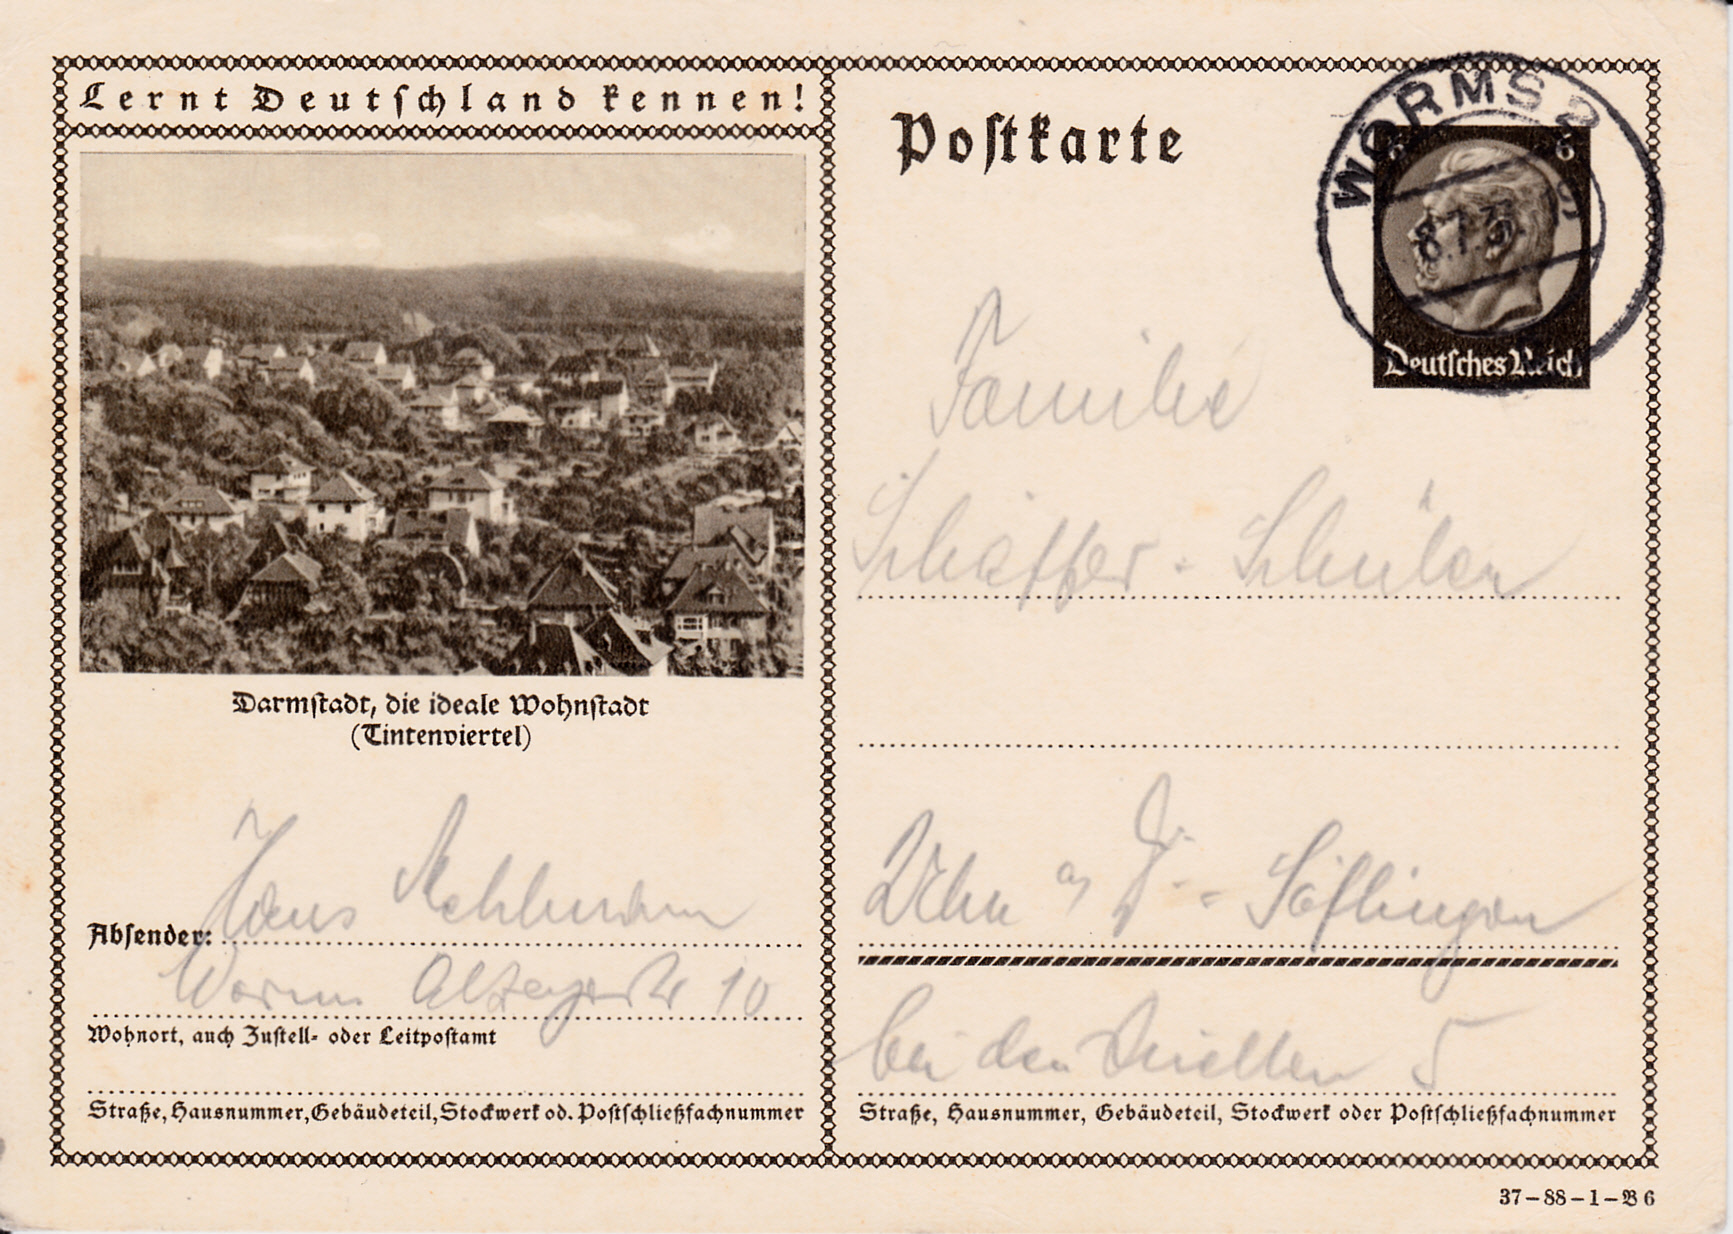 Lernt Deutschland kennen!
Darmstadt, die ideale Wohnstadt
(Tintenviertel)
Hans
Absender:
Worms Alzeyerstr 10
Wohnort, auch Zustell- oder Leitpostamt
Straße, Hausnummer, Gebäudeteil, Stockwerk od. Postschließfachnummer
Postkarte
WORMS 2
6
8.7.37
Deutsches Reich
Familie
Schäffer - Schüler
Ulm a/D. - Söflingen
bei den Quellen 5
Straße, Hausnummer, Gebäudeteil, Stockwerk oder Postschließfachnummer
37-88-1-B6